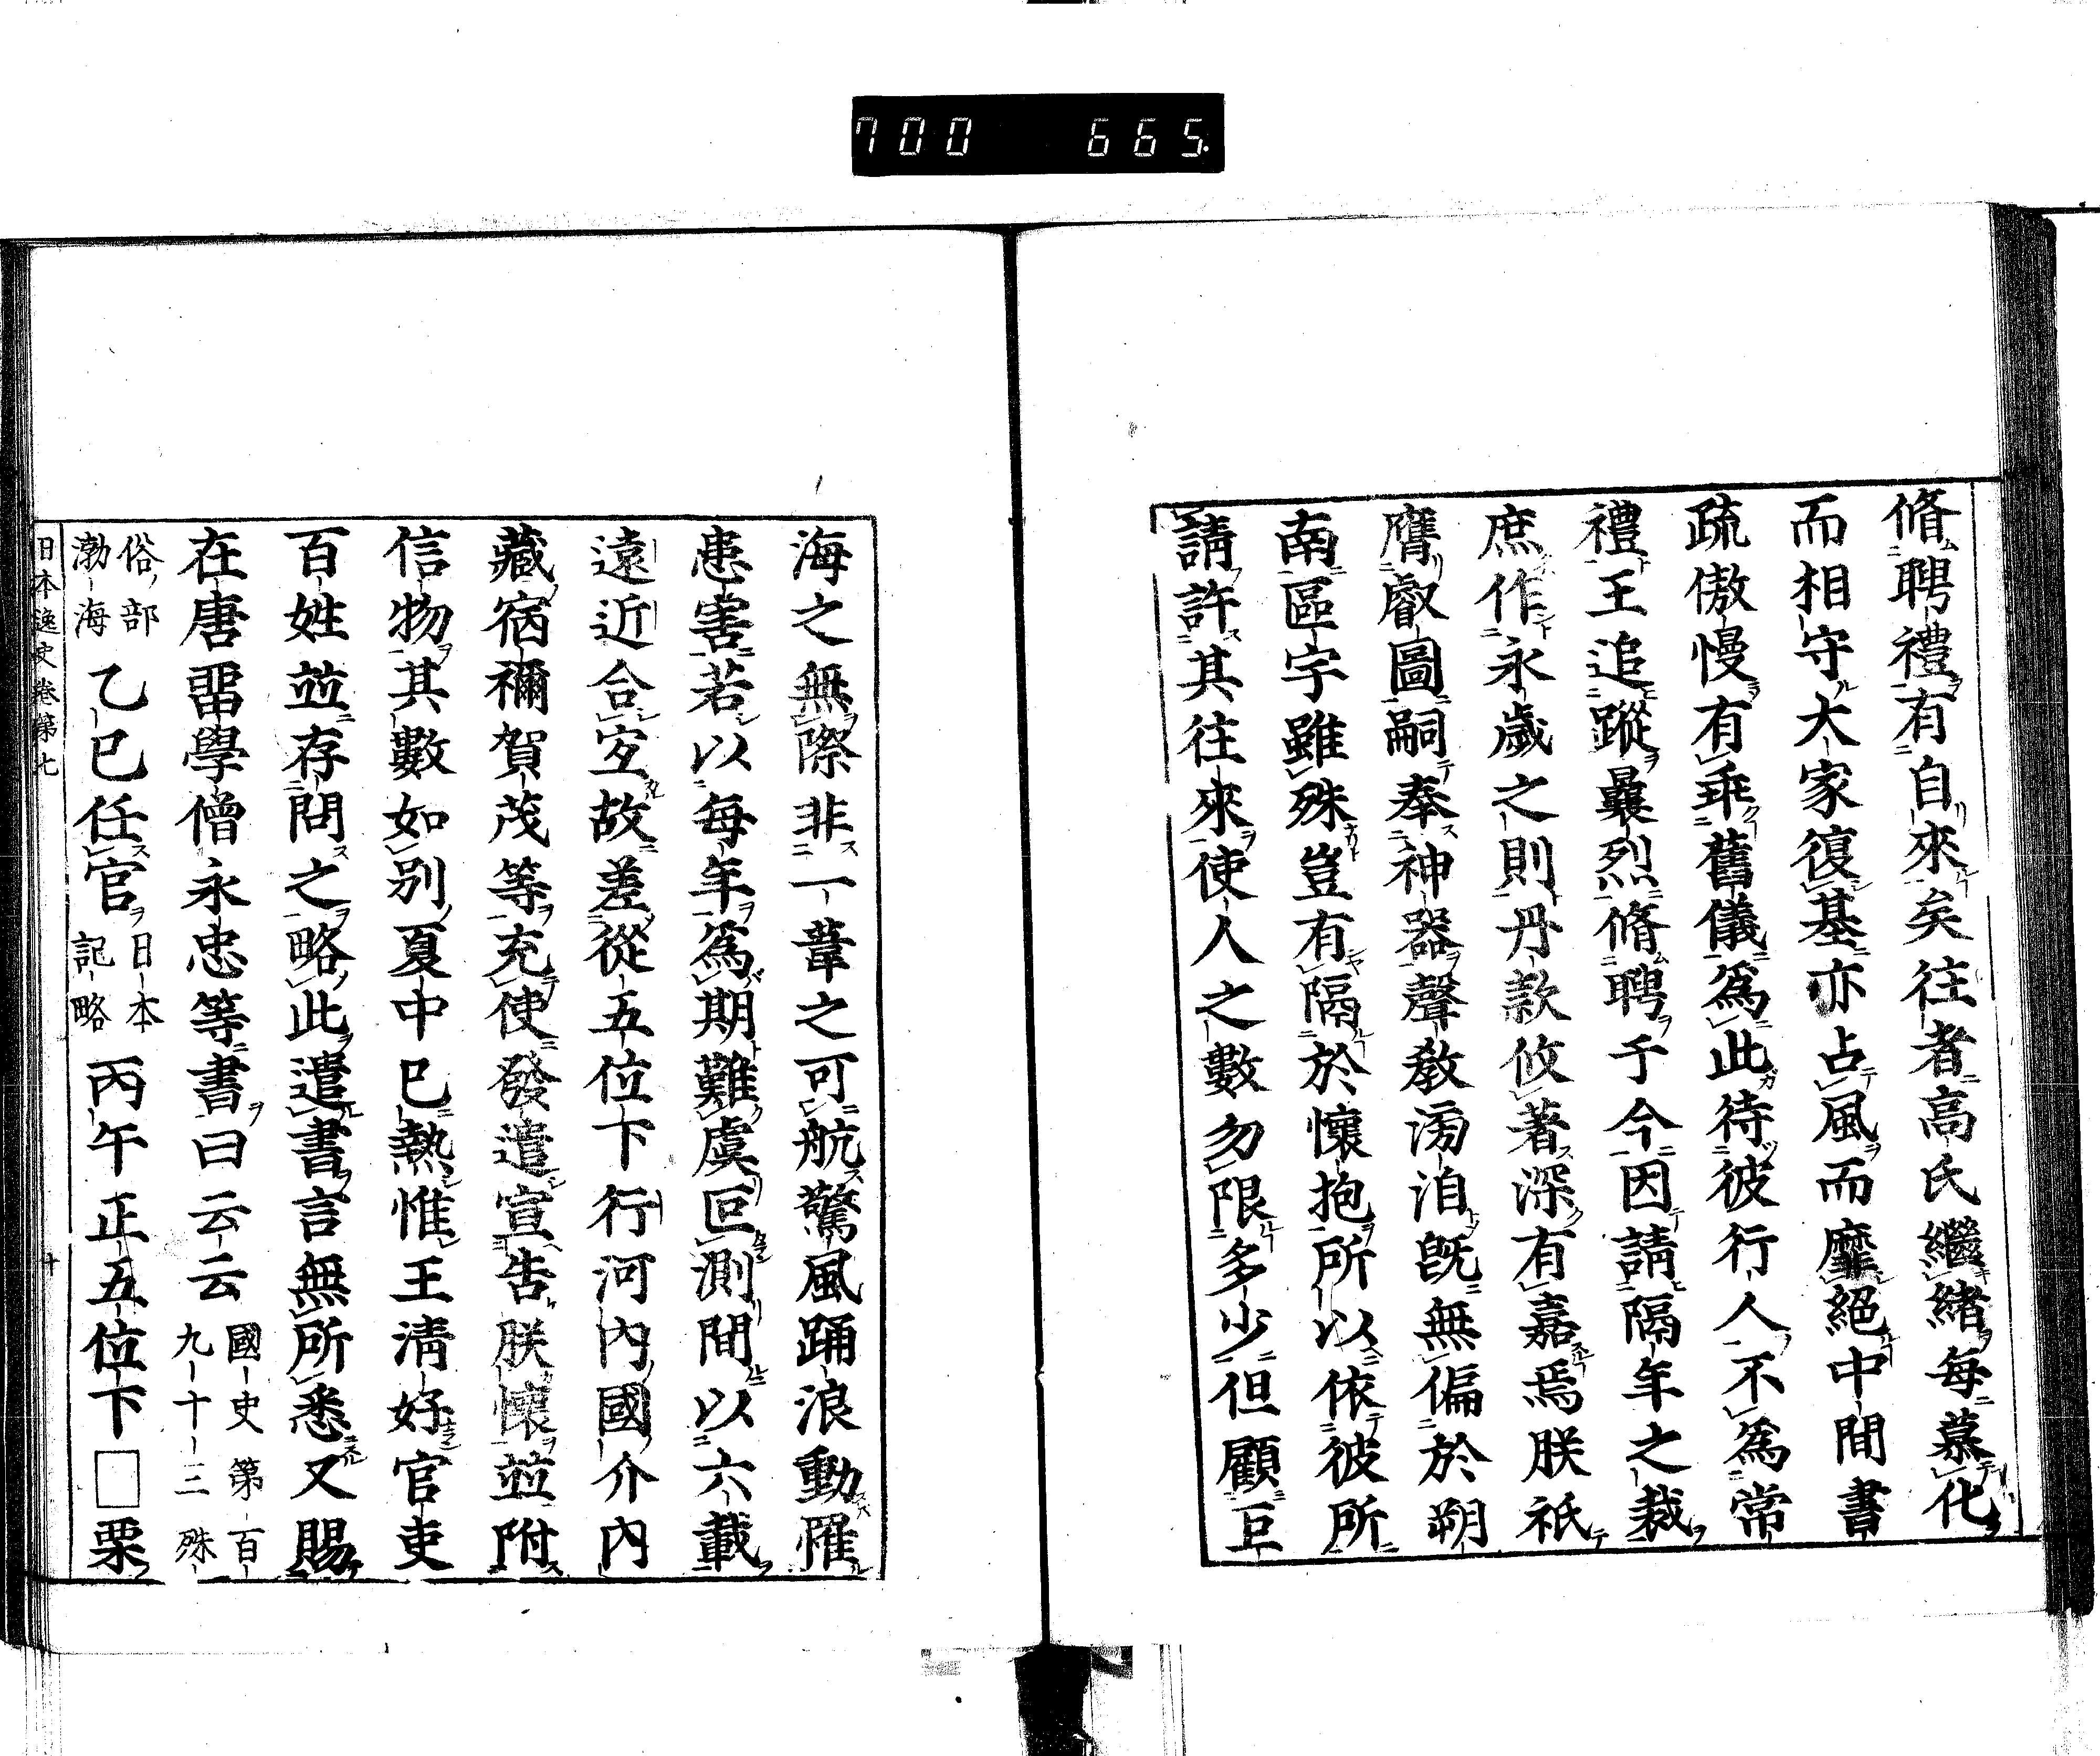 700 665.
脩聘禮有自來矣往者高氏繼緒每慕化
而相守大家復基亦占風而靡絕中間書
疏傲慢有乖舊儀爲此待彼行人不爲常
禮王追蹤曩烈脩聘于今因請隔年之裁
庶作永歲之則丹款攸著深有嘉焉朕祇
膺叡圖嗣奉神器聲敎洊洎旣無偏於朔
南區宇雖殊豈有隔於懷抱所以依彼所
請許其往來使人之數勿限多少但顧巨
海之無際非一葦之可航驚風踊浪動罹
患害若以每年爲期難虞叵測間以六載
遠近合宜故差從五位下行河內國介內
藏宿禰賀茂等充使發遣宣告朕懷並附
信物其數如別夏中已熱惟王淸好官吏
百姓並存問之略此遣書言無所悉又賜
在唐畱學僧永忠等書曰云云 國史第百九十三殊
俗部渤海 乙巳任官 日本記略 丙午正五位下□栗
日本逸史卷第七 十